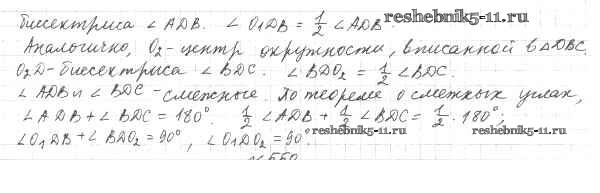 биссектриса ∠ ADB. ∠ O₁DB = 1/2 ∠ ADB. reshebnik5-11.ru
Аналогично, O₂ - центр окружности, вписанной в △DBC.
O₂D - биссектриса ∠ BDC. ∠ BDO₂ = 1/2 ∠ BDC.
∠ ADB и ∠ BDC - смежные. По теореме о смежных углах,
∠ ADB + ∠ BDC = 180°. 1/2 ∠ ADB + 1/2 ∠ BDC = 1/2 · 180°;
∠ O₁DB + ∠ BDO₂ = 90°, ∠ O₁DO₂ = 90°. reshebnik5-11.ru reshebnik5-11.ru